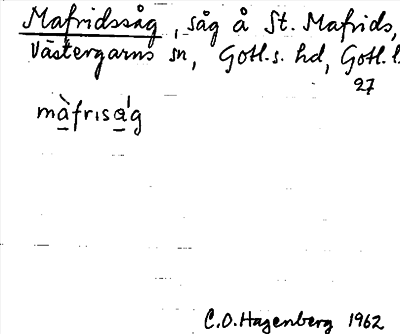 Mafridssåg, såg å St. Mafrids,
Västergarns sn, Gotl. s. hd, Gotl. l
27
màfrɪsǻg
C.O. Hagenberg 1962